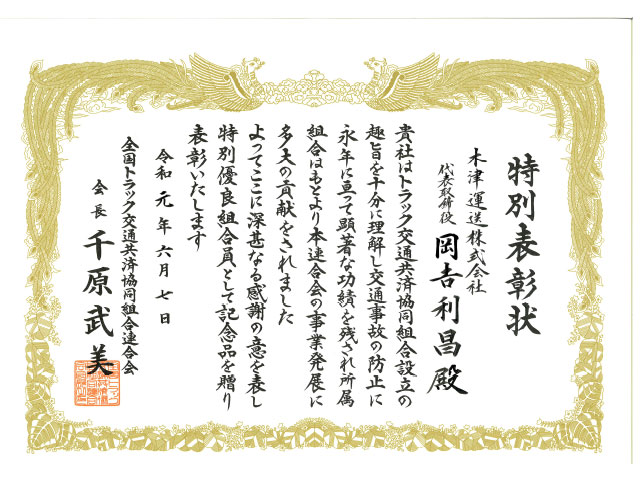 特別表彰状
木津運送株式会社
代表取締役 岡吉利昌殿
貴社はトラック交通共済協同組合設立の
趣旨を十分に理解し交通事故の防止に
永年に亘って顕著な功績を残され所属
組合はもとより本連合会の事業発展に
多大の貢献をされました
よってここに深甚なる感謝の意を表し
特別優良組合員として記念品を贈り
表彰いたします
令和元年六月七日
全国トラック交通共済協同組合連合会
会長 千原武美